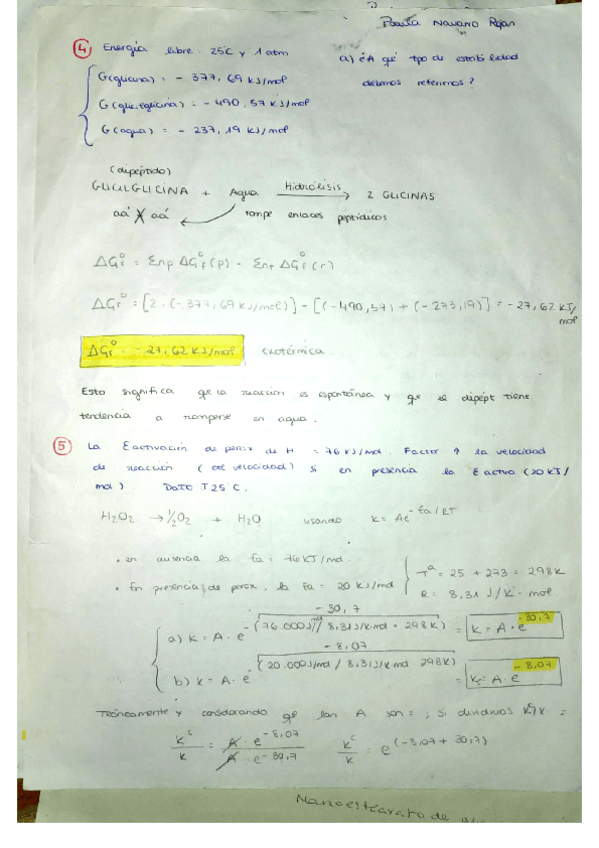 Paula Navarro Rojas
④ Energía libre 25ºC y 1 atm
a) ¿A qué tipo de estabilidad debemos referirnos?
G(glicina) = - 377,69 KJ/mol
G(glicilglicina) = - 490,57 KJ/mol
G(agua) = - 237,19 KJ/mol
(dipéptido)
GLICILGLICINA + Agua Hidrólisis → 2 GLICINAS
aá X aá rompe enlaces peptídicos
ΔGr° = Σnp ΔGf°(p) - Σnr ΔGf°(r)
ΔGr° = [2 · (-377,69 KJ/mol)] - [(-490,57) + (-273,19)] = -27,62 KJ/mol
ΔGr° = -27,62 KJ/mol exotérmica
Esto significa que la reacción es espontánea y que el dipépt tiene
tendencia a romperse en agua.
⑤ La E activación de perox de H = 76 KJ/mol. Factor ↑ la velocidad
de reacción ( velocidad) si en presencia la E activa (20 KJ/
mol). Dato T 25ºC.
H2O2 → ½O2 + H2O usando k = Ae^-Ea/RT
• en ausencia la Ea = 76 KJ/mol
• En presencia de perox, la Ea = 20 KJ/mol
Tª = 25 + 273 = 298K
R = 8,31 J/K·mol
-30,7
a) k = A · e^-(76.000 J/mol / 8,31 J/K mol · 298K) = k = A · e^-30,7
-8,07
b) k = A · e^-(20.000 J/mol / 8,31 J/K mol 298K) = kc = A · e^-8,07
Teóricamente y considerando que las A son = , si dividimos kc/k =
k^c/k = A · e^-8,07 / A · e^-30,7 k^c/k = e^(-8,07 + 30,7)
Monoestearato de